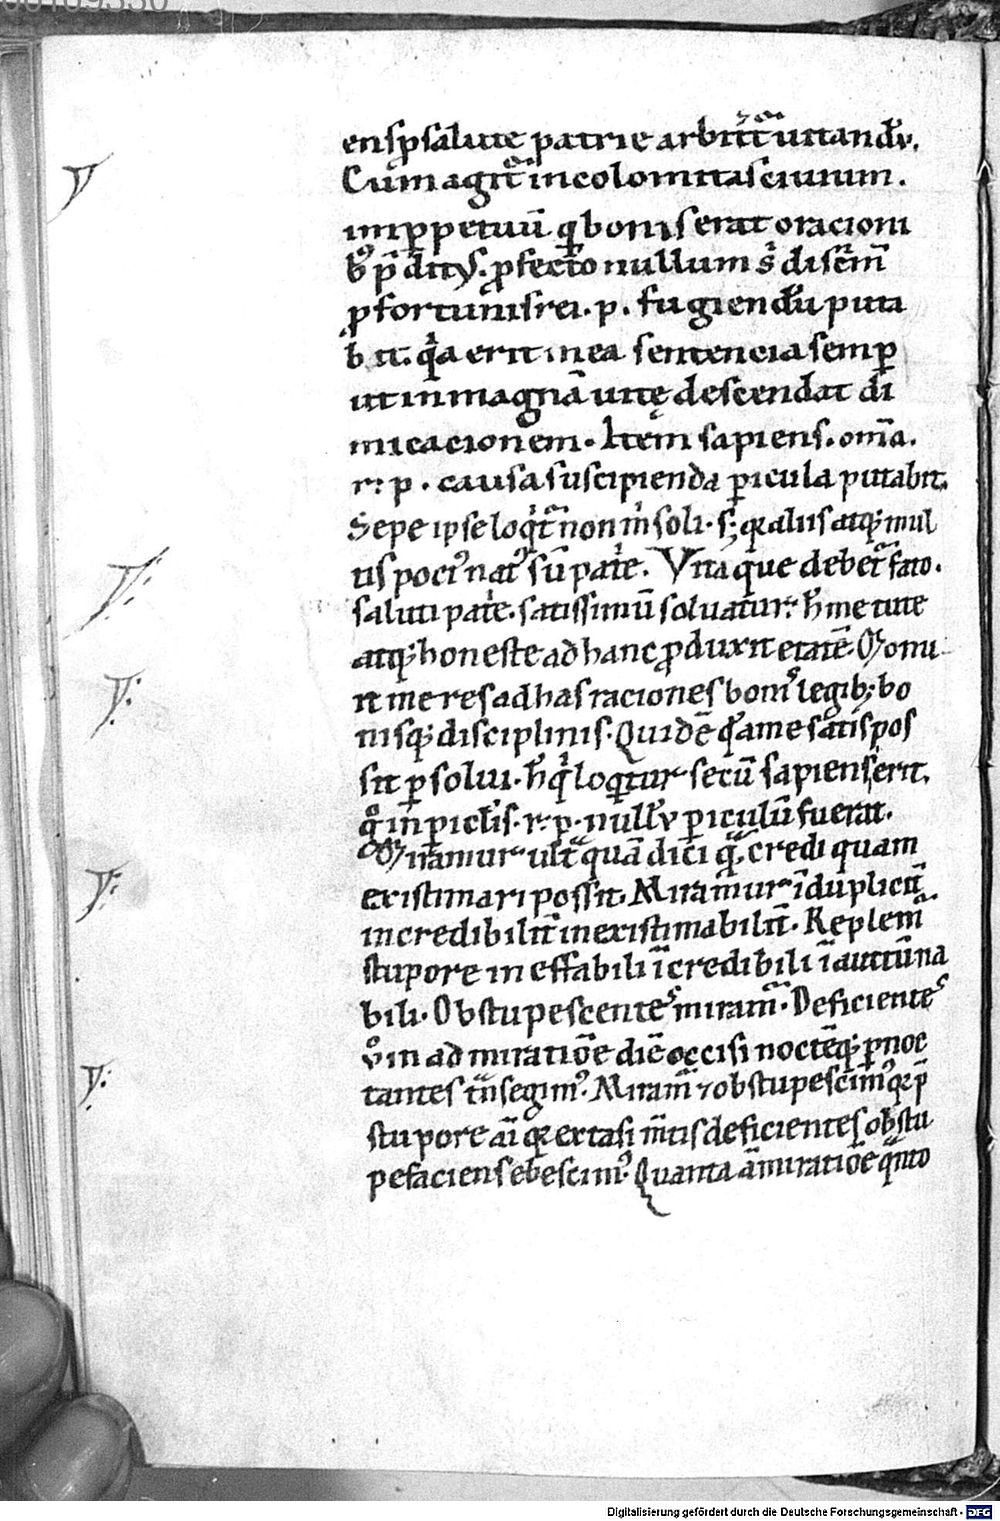 ens p̱ salute patrie arbitᷓt᷑ uitandū.
Cum agit᷑ incolomitas ciuium.
imppetuū qb boni serat oracioni
b p̄ditꝰ. pfecto nullum s disc̄m̄
p fortunis rei. p. fugiendū puta
bit. qa erit in ea sentencia semp
ut in magnā uitę descendat di
micacionem. Itē sapiens. om̄a.
r: p. causa suscipienda picula putabit.
Sepe ipse loqt᷑ non m soli. s; qꝛ aliis atq; mul
tis pociꝰ natꝰ sū pat̄e. Vita que debet᷑ fato.
saluti pat̄e. satissimū soluatur. h̄ me tute
atq; honeste ad hanc pduxit etatē. Monu
it me res ad has raciones bonꝰ legib; bo
nisq; disciplinis. Quidē q̄ a me satis pos
sit p solui. h̄ qi loqtur secū sapiens erit.
qͦ in piclīs. r: p. nullū piculū fuerat.
Miramur ult̄ quā dici q, credi quam
existimari possit. Miramur ī duplicit̄
incredibilit̄ inexistimabilit̄. Replem᷑
stupore ineffabili īcredibili
bili. Obstupescentes miram᷑. Deficientes
v̊ in admiratiōe diē occisi noctēq; pnoc
tantes segimꝰ. Miram᷑ ⁊ obstupescimꝰ qꝛ p̄
stupore aī qꝛ extasi m̄tis deficientes obstu
pefaciens ebescimꝰ. Quanta āmiratiōe qnto